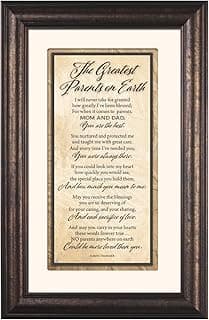 The Greatest
Parents on Earth
I will never take for granted
how greatly I've been blessed;
For when it comes to parents,
MOM AND DAD,
You are the best.
You nurtured and protected me
and taught me with great care.
And every time I've needed you,
You were always there.
If you could look into my heart
how quickly you would see,
the special place you hold there,
And how much you mean to me.
May you receive the blessings
you are so deserving of
for your caring, and your sharing,
And each sacrifice of love.
And may you carry in your hearts
these words forever true ...
NO parents anywhere on earth
Could be more loved than you.